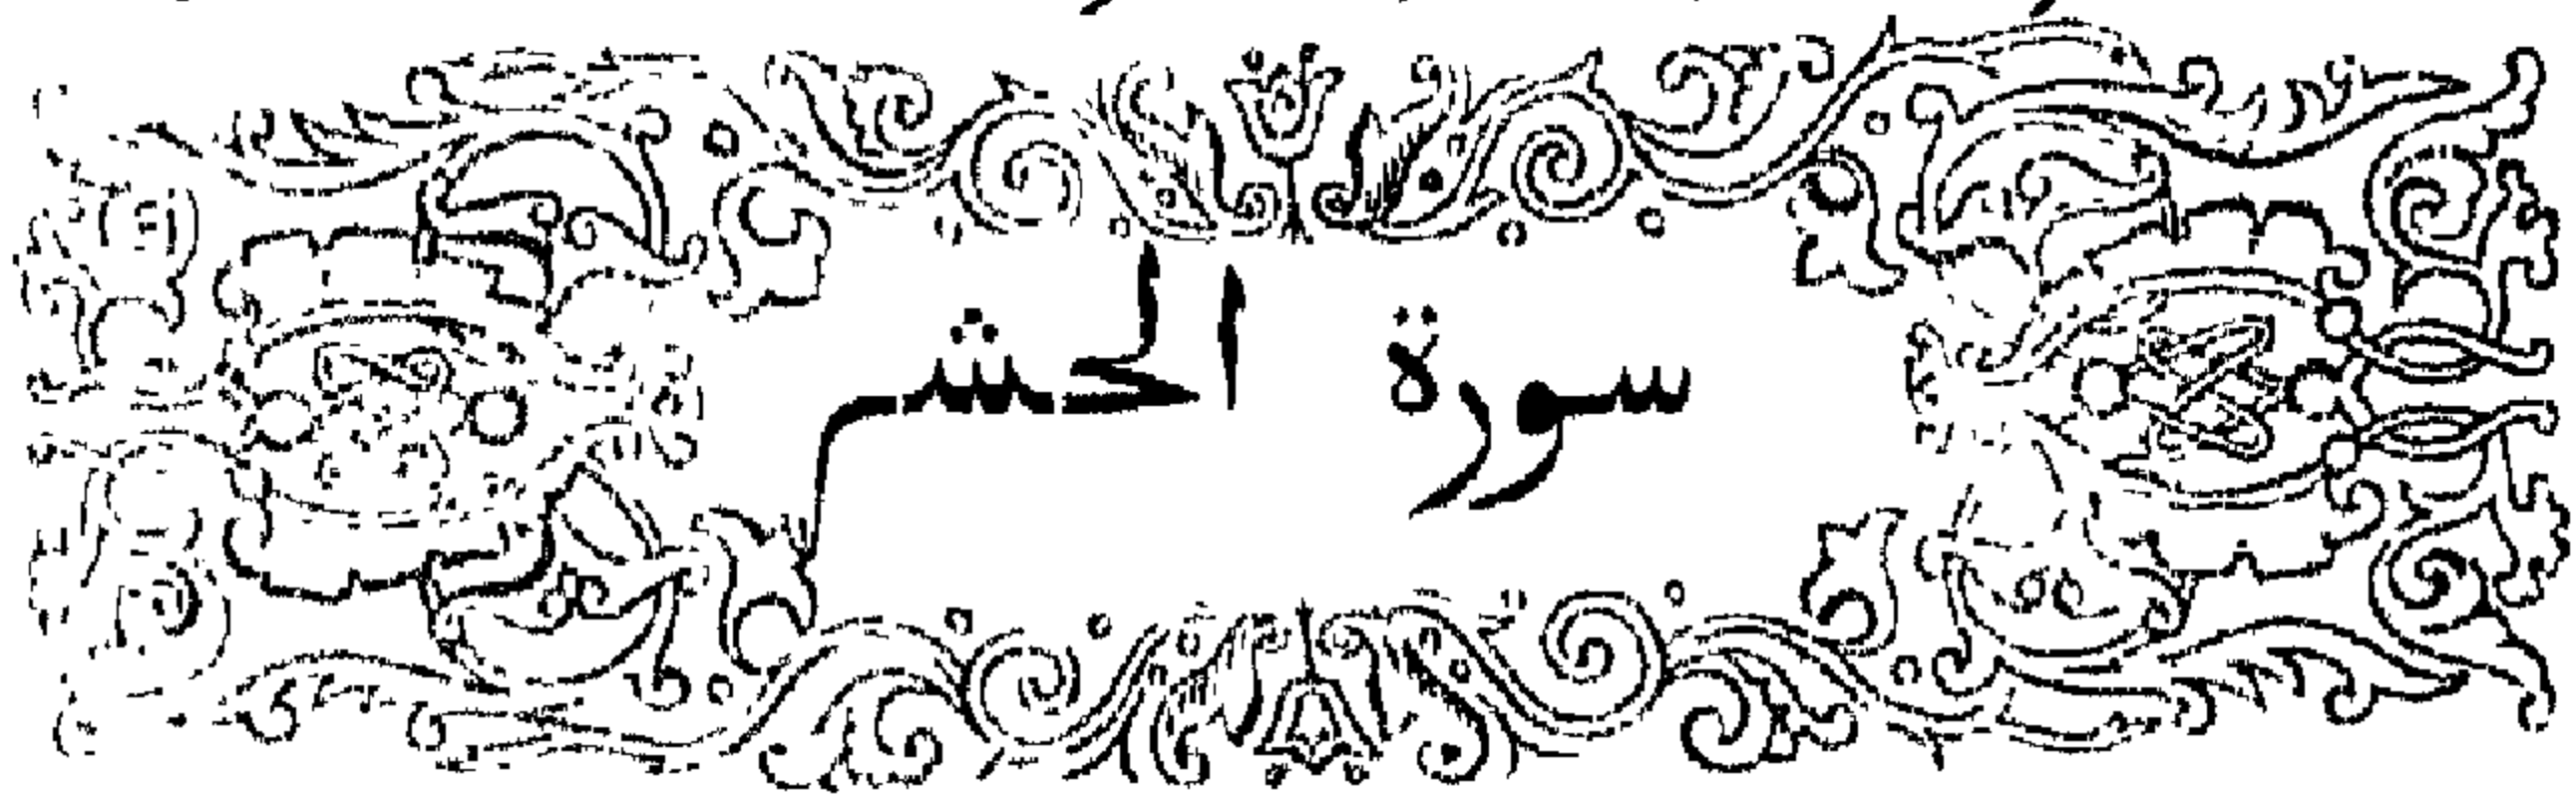 سورة الحشر